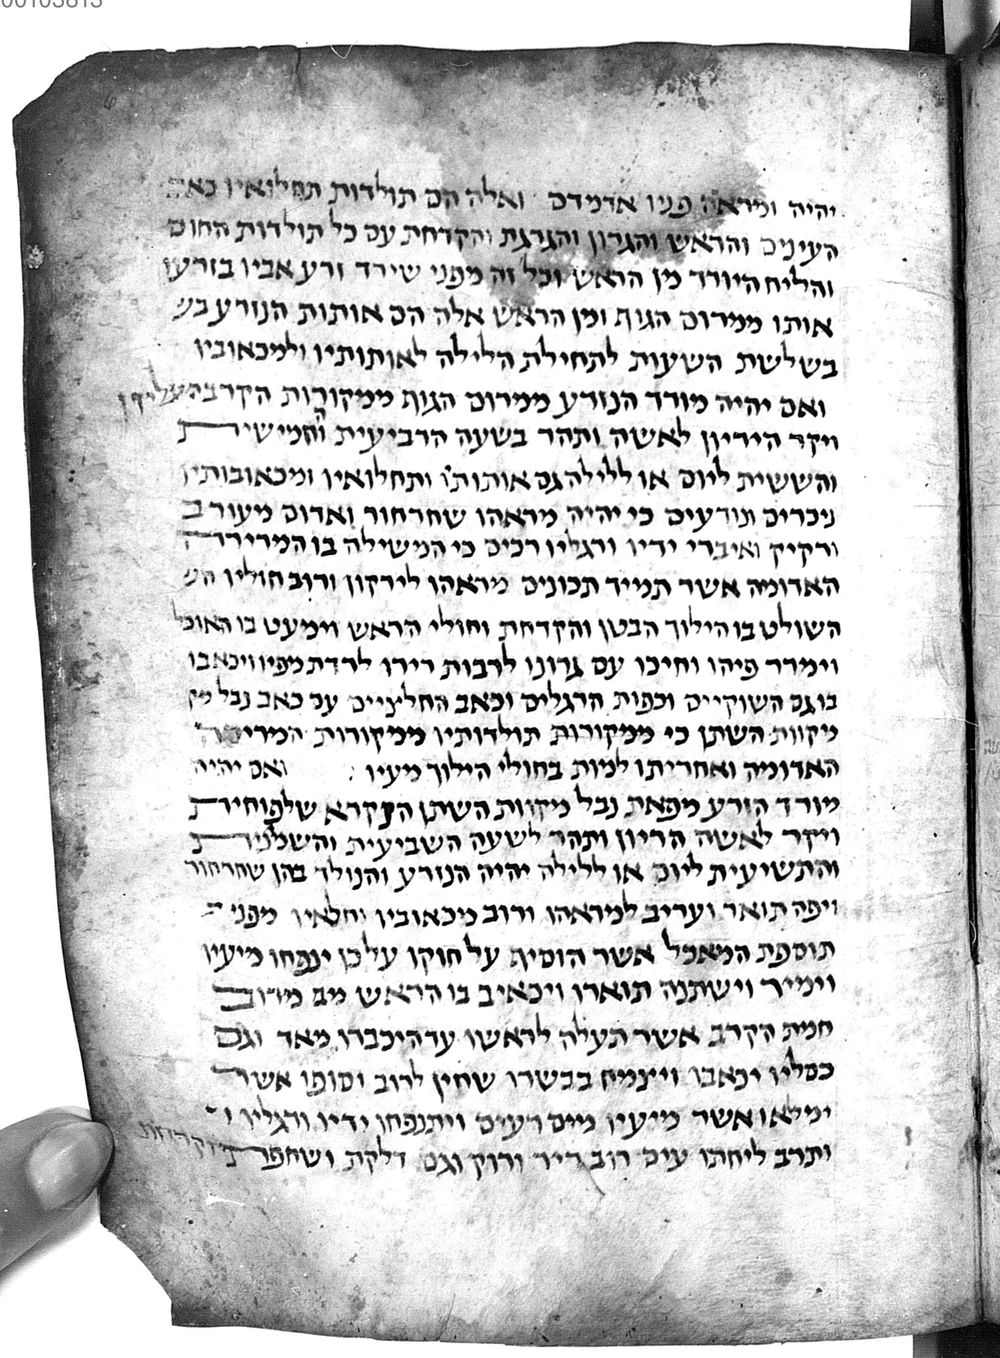 00103813
יהיה ומראה פניו אדמדם ואלה הם תולדות תחלואיו כאב
העינים והראש והגרון והגרגרת והקדחת עם כל תולדות החום
והליח היורד מן הראש וכל זה מפני שירד זרע אביו בזרעו
אותו ממרום הגוף ומן הראש אלה הם אותות הנזרע בש
בשלשת השעות לתחילת הלילה לאותותיו ולמכאוביו
ואם יהיה מורד הנזרע ממרום הגוף ממקורות הקרב העליון
ויקר היריון לאשה ותהר בשעה הרביעית והחמישית
והששית ליום או ללילה גם אותותיו ותחלואיו ומכאובותיו
ניכרים ונודעים כי יהיה מראהו שחרחור ואדום מעורב
ורקיק ואיברי ידיו ורגליו רכים כי המשילה בו המרירה
האדומה אשר תמיד תכונים מראהו לירקון ורוב חוליו הש
השולט בו הילוך הבטן והקדחת וחולי הראש וימעט בו האוכל
וימרר פיהו וחיכו עם גרונו לרבות רירו לרדת מפיו ויכאבו
בו גם השוקיים וכפות הרגלים וכאב החלציים עם כאב נבל מק
מקוות השתן כי ממקורות תולדותיו ממקורות המרירה
האדומה ואחריתו למות בחולי הילוך מעיו ואם יהיה
מורד הזרע מפאת נבל מקוות השתן הנקרא שלפוחית
ויקר לאשה הריון ותהר לשעה השביעית והשמנית
והתשיעית ליום או ללילה יהיה הנזרע והנולד בהן שחרחור
ויפה תואר ועריב למראהו ורוב מכאוביו וחלאיו מפני
תוספת המאכל אשר הוסיף על חוקו על כן ינפחו מיעיו
וימיר וישתנה תוארו ויכאיב בו הראש גם מרוב
חמת הקרב אשר תעלה לראשו עד היכברו מאד וגם
כסליו יכאבו ויצמח בבשרו שחין לרוב וסופו אשר
ימלאו אשר מיעיו מים רעים ויתנפחו ידיו ורגליו ו
ותרב ליחתו עים רוב ריר ורוק וגם דלקת ושחפת